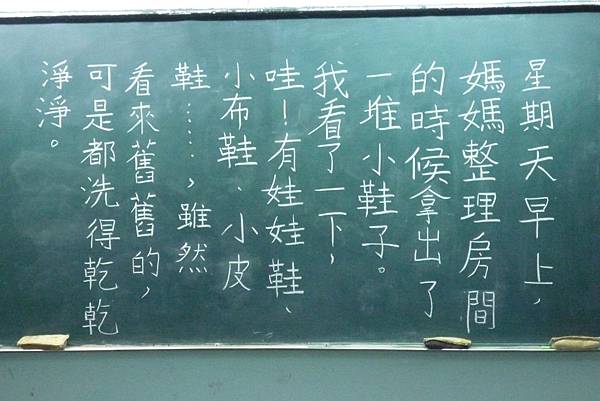 星期天早上，
媽媽整理房間
的時候拿出了
一堆小鞋子。
我看了一下，
哇！有娃娃鞋、
小布鞋、小皮
鞋……，雖然
看來舊舊的，
可是都洗得乾乾
淨淨。